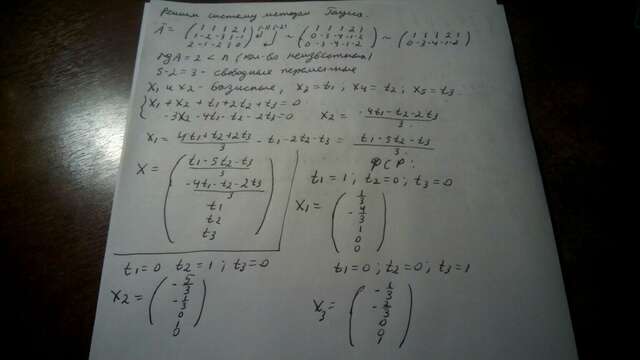 Решим систему методом Гаусса.
Ā = (1 1 1 2 1 / 1 -2 -3 1 -1 / 2 -1 -2 3 0) ~ (1 1 1 2 1 / 0 -3 -4 -1 -2 / 0 -3 -4 -1 -2) ~ (1 1 1 2 1 / 0 -3 -4 -1 -2)
rgA = 2 < n (кол-во неизвестных)
5-2=3 - свободные переменные
x1 и x2 - базисные, x3 = t1; x4 = t2; x5 = t3
{ x1 + x2 + t1 + 2t2 + t3 = 0
-3x2 - 4t1 - t2 - 2t3 = 0 x2 = (-4t1 - t2 - 2t3)/3
x1 = (4t1 + t2 + 2t3)/3 - t1 - 2t2 - t3 = (t1 - 5t2 - t3)/3
X = ((t1 - 5t2 - t3)/3 / (-4t1 - t2 - 2t3)/3 / t1 / t2 / t3)
ФСР:
t1 = 1; t2 = 0; t3 = 0
X1 = (1/3 / -4/3 / 1 / 0 / 0)
t1 = 0 t2 = 1; t3 = 0
X2 = (-5/3 / -1/3 / 0 / 1 / 0)
t1 = 0; t2 = 0; t3 = 1
X3 = (-1/3 / -2/3 / 0 / 0 / 1)